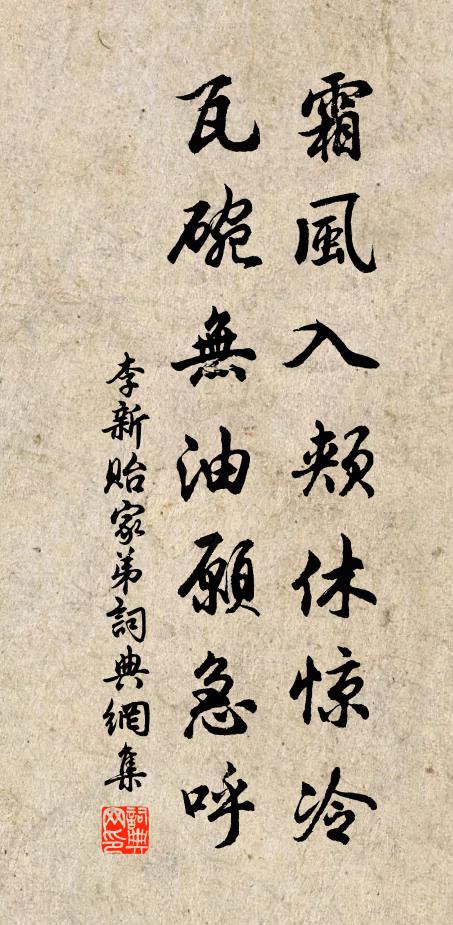 霜風入頰休惊冷
瓦碗無油願急呼
李新貽家弟詞典網集
詞典
网印